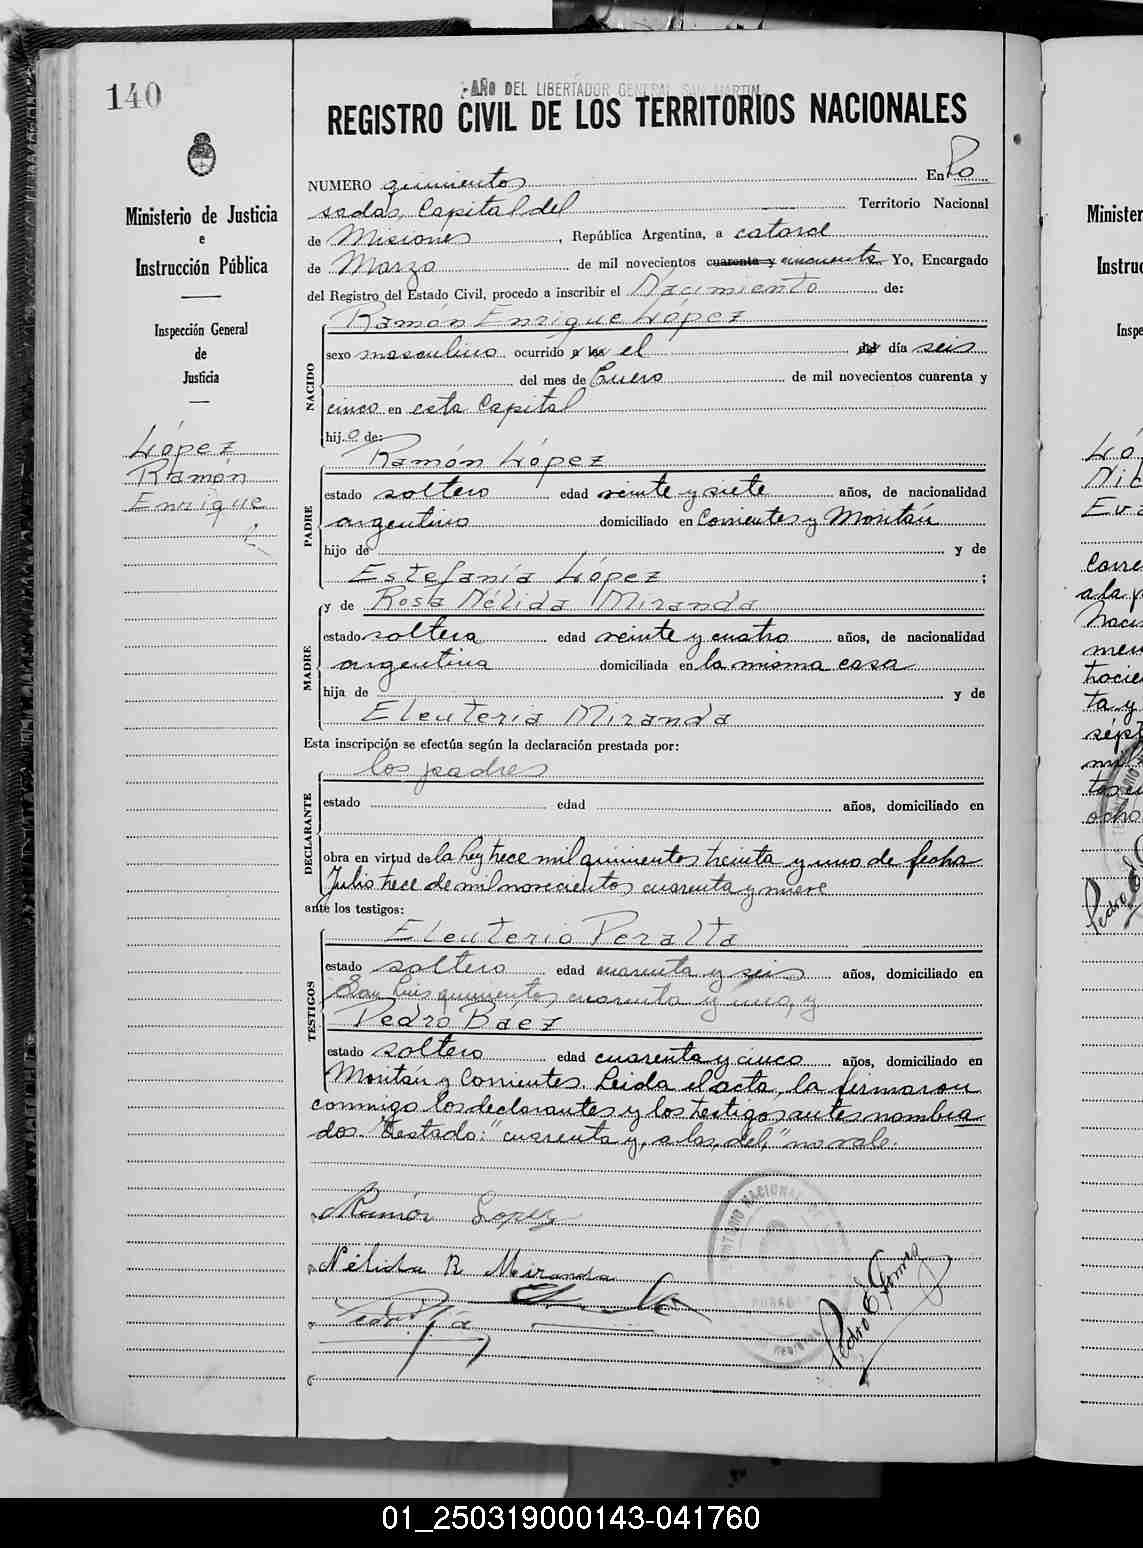 140
AÑO DEL LIBERTADOR GENERAL SAN MARTIN
REGISTRO CIVIL DE LOS TERRITORIOS NACIONALES
Ministerio de Justicia
e
Instrucción Pública
Inspección General
de
Justicia
López
Ramón
Enrique
NUMERO quinientos En Po
sadas, Capital del Territorio Nacional
de Misiones, República Argentina, a catorce
de Marzo de mil novecientos cuarenta y cincuenta Yo, Encargado
del Registro del Estado Civil, procedo a inscribir el Nacimiento de:
NACIDO
Ramón Enrique López
sexo masculino ocurrido a las el del día seis
del mes de Enero de mil novecientos cuarenta y
cinco en esta Capital
hijo de:
PADRE
Ramón López
estado soltero edad veinte y siete años, de nacionalidad
argentino domiciliado en Corrientes y Moritán
hijo de y de
Estefanía López ;
MADRE
y de Rosa Nélida Miranda
estado soltera edad veinte y cuatro años, de nacionalidad
argentina domiciliada en la misma casa
hija de y de
Eleuteria Miranda
Esta inscripción se efectúa según la declaración prestada por:
DECLARANTE
los padres
estado edad años, domiciliado en
obra en virtud de la Ley trece mil quinientos treinta y uno de fecha
Julio trece de mil novecientos cuarenta y nueve
ante los testigos:
TESTIGOS
Eleuterio Peralta
estado soltero edad cuarenta y seis años, domiciliado en
San Luis quinientos cuarenta y uno, y
Pedro Baez
estado soltero edad cuarenta y cinco años, domiciliado en
Moritán y Corrientes. Leida el acta, la firmaron
conmigo los declarantes y los testigos antes nombra
dos. Testado: "cuarenta y, a las, del," no vale.
Ramón Lopez
Nélida R Miranda
Pedro E Gomez
Minister
Instruc
Inspe
Ló
Evo
Corre
a la
Naci
men
ta y
sépt
mil
ocho
01_250319000143-041760